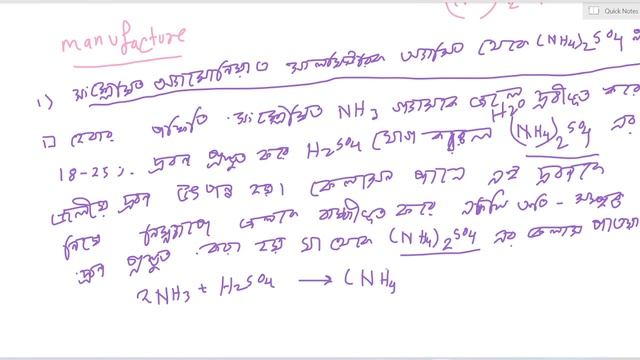 (NH 2
Quick Notes
manufacture
১) সংশ্লেষিত অ্যামোনিয়া ও সালফিউরিক অ্যাসিড থেকে (NH4)2SO4
হেবার পদ্ধতি সংশ্লেষিত NH3 গ্যাসকে জলে H2O দ্রবীভূত করে
18-25%. দ্রবণ প্রস্তুত করে H2SO4 যোগ করলে (NH4)2SO4 এর
জলীয় দ্রবণ উৎপন্ন হয়। কেলাসন পাত্রে এই দ্রবণকে
নিয়ে নিম্নচাপে জলকে বাষ্পীভূত করে একটি অতি-সম্পৃক্ত
দ্রবণ প্রস্তুত করা হয় যা থেকে (NH4)2SO4 এর কেলাস পাওয়া
2NH3 + H2SO4 → (NH4